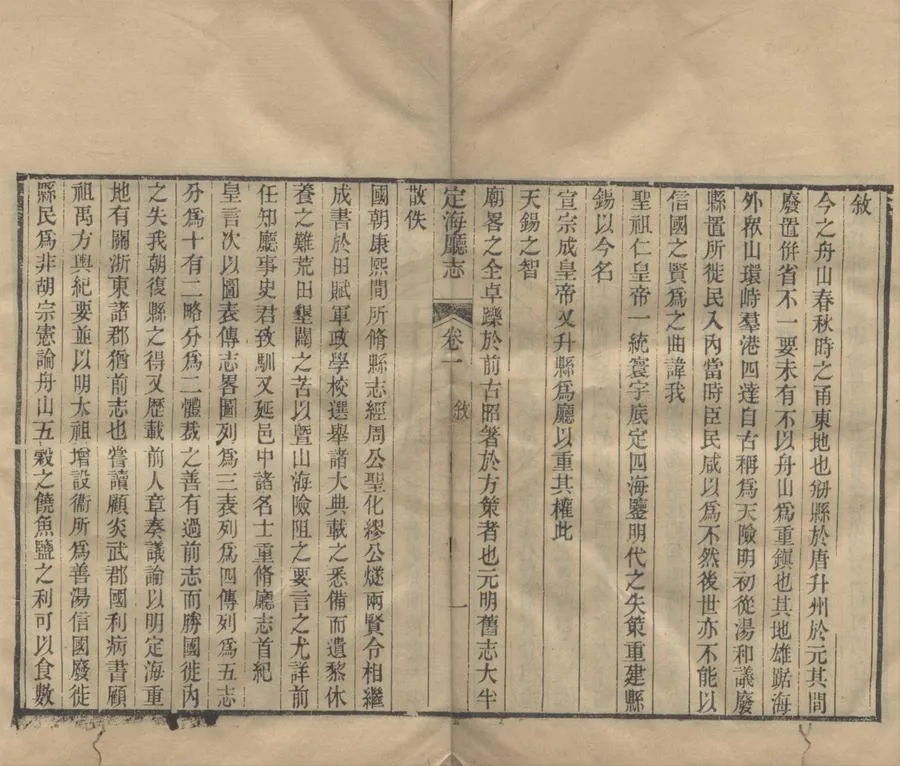 敘
今之舟山春秋時之甬東地也刱縣於唐升州於元其間
廢置併省不一要未有不以舟山爲重鎮也其地雄踞海
外衆山環峙羣港四達自古稱爲天險明初從湯和議廢
縣置所徙民入內當時臣民咸以爲不然後世亦不能以
信國之賢爲之曲諱我
聖祖仁皇帝一統寰宇底定四海鑒明代之失策重建縣
錫以今名
宣宗成皇帝又升縣爲廳以重其權此
天錫之智
廟畧之全卓躒於前古昭著於方策者也元明舊志大半
定海廳志 卷一 敘 一
散佚
國朝康熙間所脩縣志經周公聖化繆公燧兩賢令相繼
成書於田賦軍政學校選舉諸大典載之悉備而遺黎休
養之難荒田墾闢之苦以暨山海險阻之要言之尤詳前
任知廳事史君致馴又延邑中諸名士重脩廳志首紀
皇言次以圖表傳志畧圖列爲三表列爲四傳列爲五志
分爲十有二略分爲二體裁之善有過前志而勝國徙內
之失我朝復縣之得又歷載前人章奏議論以明定海重
地有關浙東諸郡猶前志也嘗讀顧炎武郡國利病書顧
祖禹方輿紀要並以明太祖增設衞所爲善湯信國廢徙
縣民爲非胡宗憲論舟山五穀之饒魚鹽之利可以食數